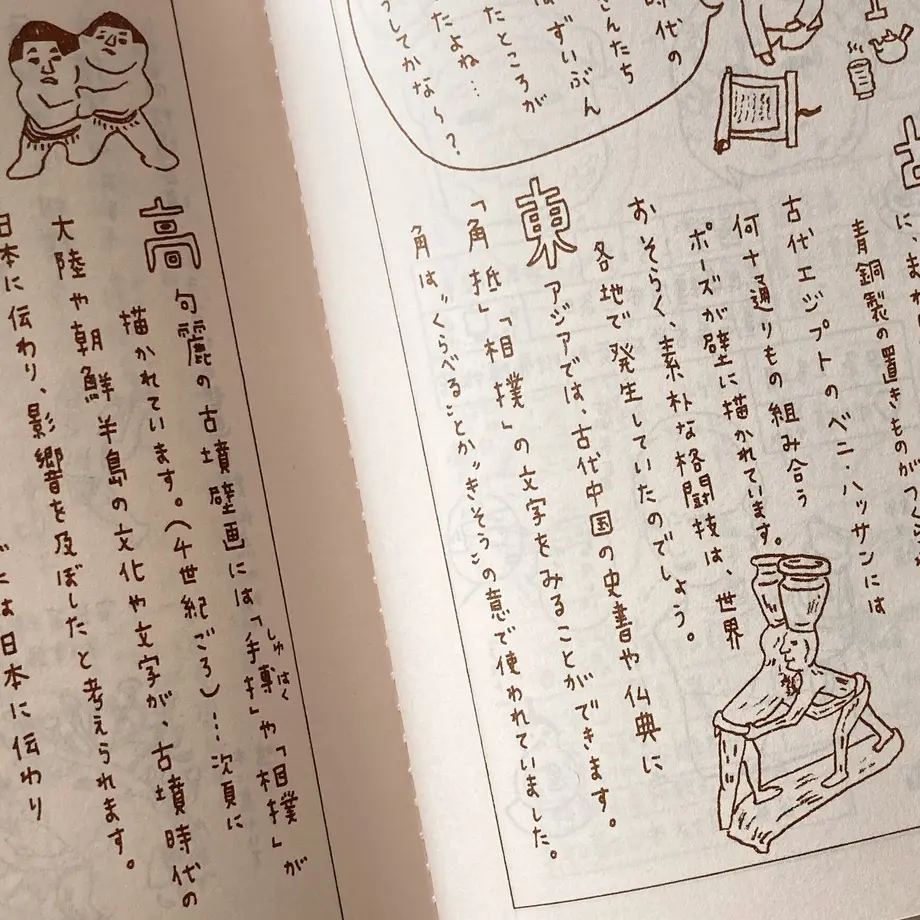 時代の
さんたち
ずいぶん
たところが
たよね…
うしてかな〜?
に、ま
青銅製の置きものがつくら
古代エジプトのベニ・ハッサンには
何十通りもの組み合う
ポーズが壁に描かれています。
おそらく、素朴な格闘技は、世界
各地で発生していたのでしょう。
東アジアでは、古代中国の史書や仏典に
「角抵」「相撲」の文字をみることができます。
角は〝くらべることか〟きそう〟の意で使われていました。
高句麗の古墳壁画には「手搏」や「相撲」が
しゅはく
描かれています。(4世紀ごろ)…次頁に
大陸や朝鮮半島の文化や文字が、古墳時代の
日本に伝わり、影響を及ぼしたと考えられます。
は日本に伝わり